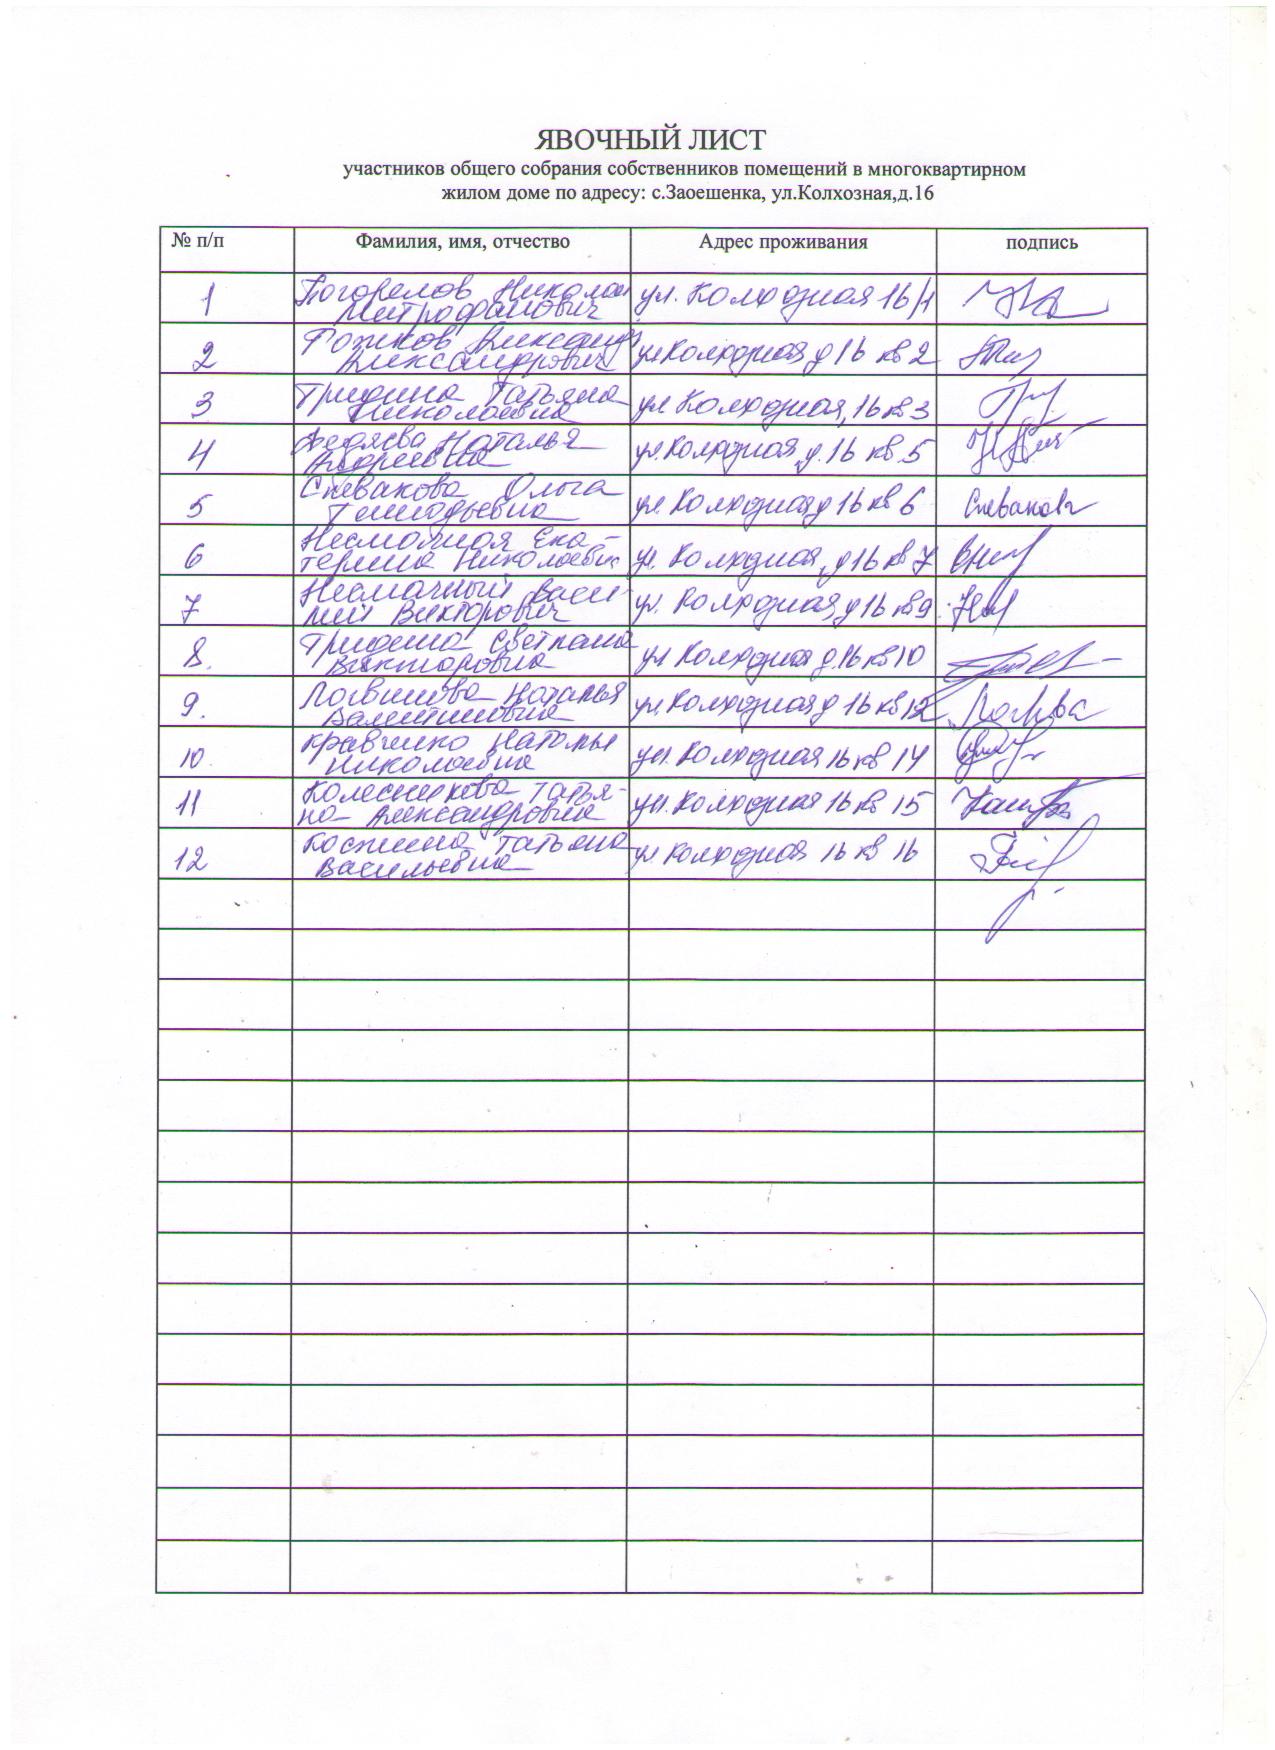 ЯВОЧНЫЙ ЛИСТ
участников общего собрания собственников помещений в многоквартирном
жилом доме по адресу: с.Заоешенка, ул.Колхозная,д.16
№ п/п Фамилия, имя, отчество Адрес проживания подпись
1 Погорелов Николай ул. Колхозная 16/1
Митрофанович
2 Рожков Александр ул Колхозная д 16 кв 2
Александрович
3 Гридина Татьяна ул Колхозная, 16 кв 3
Николаевна
4 Наталья ул. Колхозная д. 16 кв. 5
Андреевна
5 Спевакова Ольга ул. Колхозная д 16 кв 6 Спевакова
Геннадьевна
6 Несмочная Ека- ул. Колхозная, д 16 кв 7
терина Николаевн
7 Несмачный Васи- ул. Колхозная д 16 кв 9
лий Викторович
8. Гридина Светлана ул Колхозная д. 16 кв 10
Викторовна
9. Логвинова Наталья ул. Колхозная д 16 кв 12
Валентиновна
10. Кравченко Наталья ул. Колхозная 16 кв 14
Николаевна
11 Колесникова Татья- ул. Колхозная 16 кв 15
на Александровна
12 Татьяна ул Колхозная 16 кв 16
Васильевна